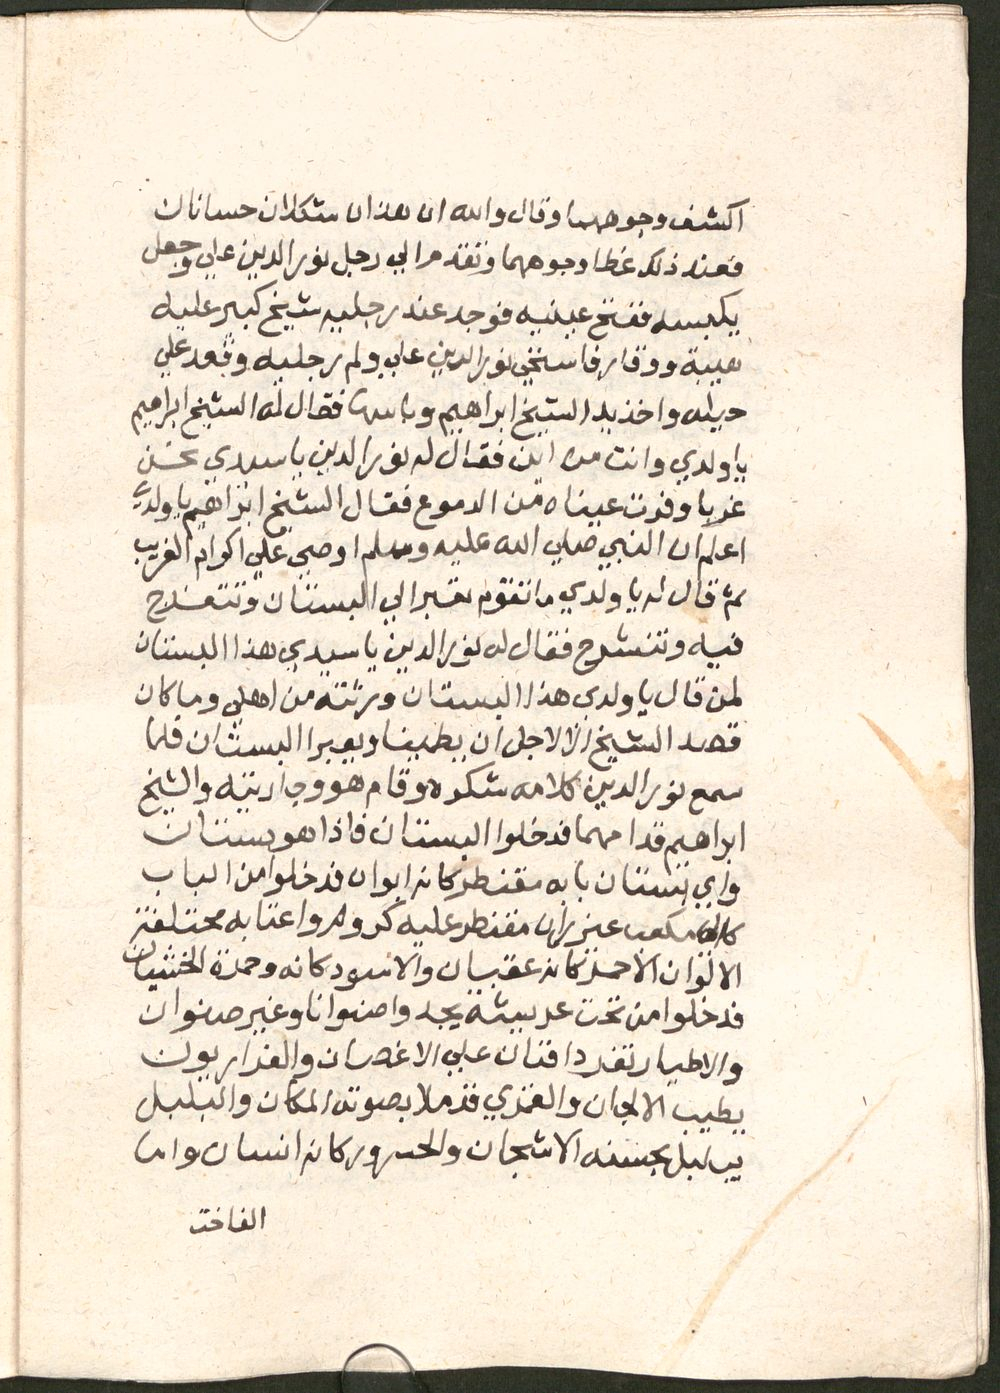 اكشف وجوههما وقال والله ان هذان شكلان حسانان
فعند ذلك غطا وجوههما وتقدم الي رجل نور الدين علي وجعل
يكبسه ففتح عينيه فوجد عند رجليه شيخ كبير عليه
هيبة ووقار فاستحي نور الدين علي ولم رجليه وقعد علي
حيله واخذ يد الشيخ ابراهيم وباسها فقال له الشيخ ابراهيم
يا ولدي وانت من اين فقال له نور الدين يا سيدي نحن
غربا وفرت عيناه من الدموع فقال الشيخ ابراهيم يا ولدي
اعلم ان النبي صلي الله عليه وسلم اوصي علي اكرام الغريب
ثم قال له يا ولدي ما تقوم تعبر الي البستان وتتفرج
فيه وتنشرح فقال له نور الدين يا سيدي هذا البستان
لمن قال يا ولدي هذا البستان ورثته من اهلي وما كان
قصد الشيخ الا لاجل ان يطيبنا ويعبرا البستان فلما
سمع نور الدين كلامه شكره وقام هو وجاريته والشيخ
ابراهيم قدامهما فدخلوا البستان فاذا هو بستان
واي بستان بابه مقنطر كانه ايوان فدخلوا من الباب
مقنطر عليه كروم واعنابه مختلفة
الالوان الاحمر كانه عقبان والاسود كانه وحمرة الخشيان
فدخلوا من تحت عريشة يجدوا صنوانا وغير صنوان
والاطيار تغرد افنان علي الاغصان والهزار يون
يطيب الالحان والقمري قد ملا بصوته المكان والبلبل
يبلبل بحسنه الاشجان والشحرور كانه انسان واما
الفاخت